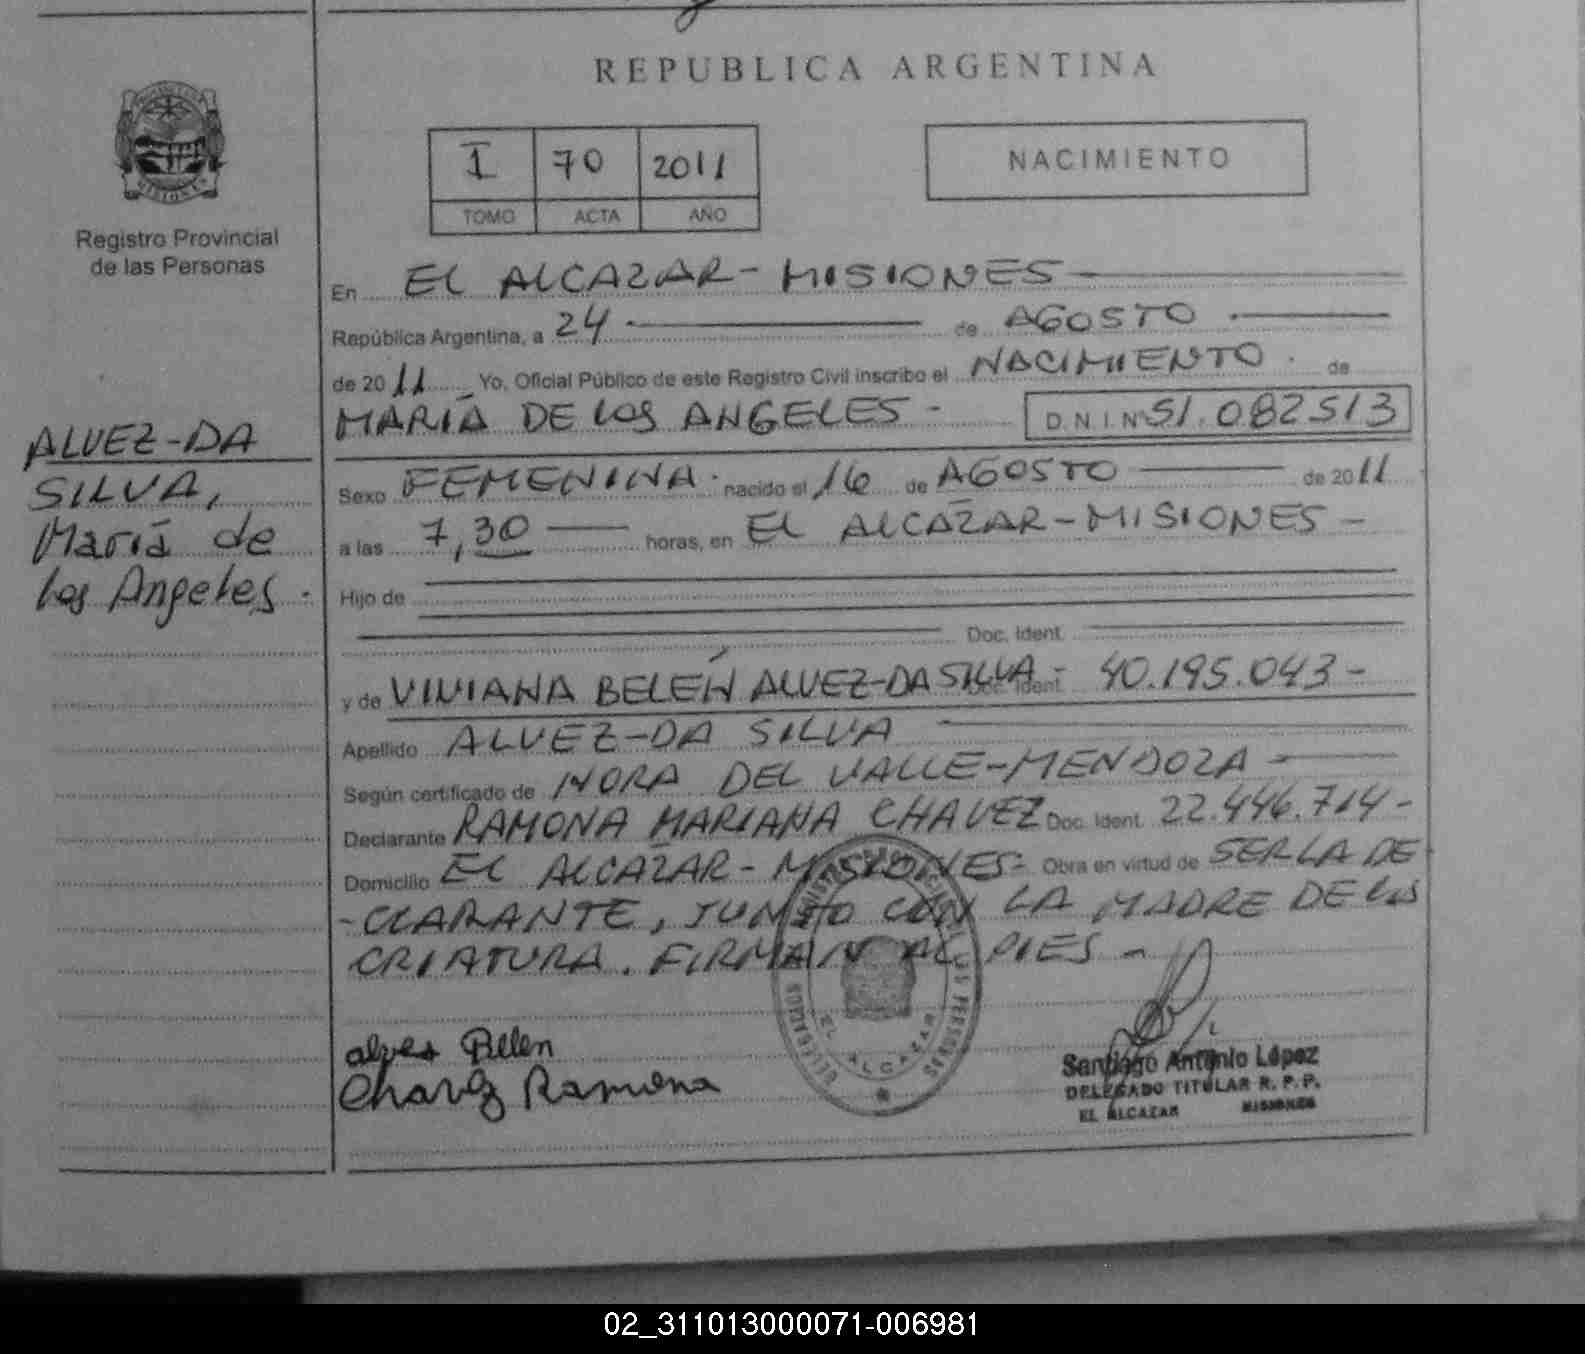 REPUBLICA ARGENTINA
PROVINCIA DE MISIONES
Registro Provincial
de las Personas
I 70 2011
TOMO ACTA AÑO
NACIMIENTO
En EL ALCAZAR - MISIONES
República Argentina, a 24 de AGOSTO
de 2011 Yo, Oficial Público de este Registro Civil inscribo el NACIMIENTO . de
MARÍA DE LOS ANGELES - D.N.I. Nº 51.082513
ALVEZ-DA
SILVA,
Mariá de
los Angeles .
Sexo FEMENINA . nacido el 16 de AGOSTO de 2011
a las 7,30 horas, en EL ALCAZAR - MISIONES -
Hijo de
Doc. Ident.
y de VIVIANA BELÉN ALVEZ-DA SILVA - Doc. Ident. 40.195.043 -
Apellido ALVEZ-DA SILVA
Según certificado de NORA DEL VALLE-MENDOZA -
Declarante RAMONA MARIANA CHAVEZ Doc. Ident. 22.446.714 -
Domicilio EL ALCAZAR - MISIONES - Obra en virtud de SER LA DE-
-CLARANTE, JUNTO CON LA MADRE DE LOS
CRIATURA. FIRMAN AL PIES -
alves Belen
Chavez Ramona
EL ALCAZAR
Santiago Antonio López
DELEGADO TITULAR R. P. P.
EL ALCAZAR MISIONES
02_311013000071-006981